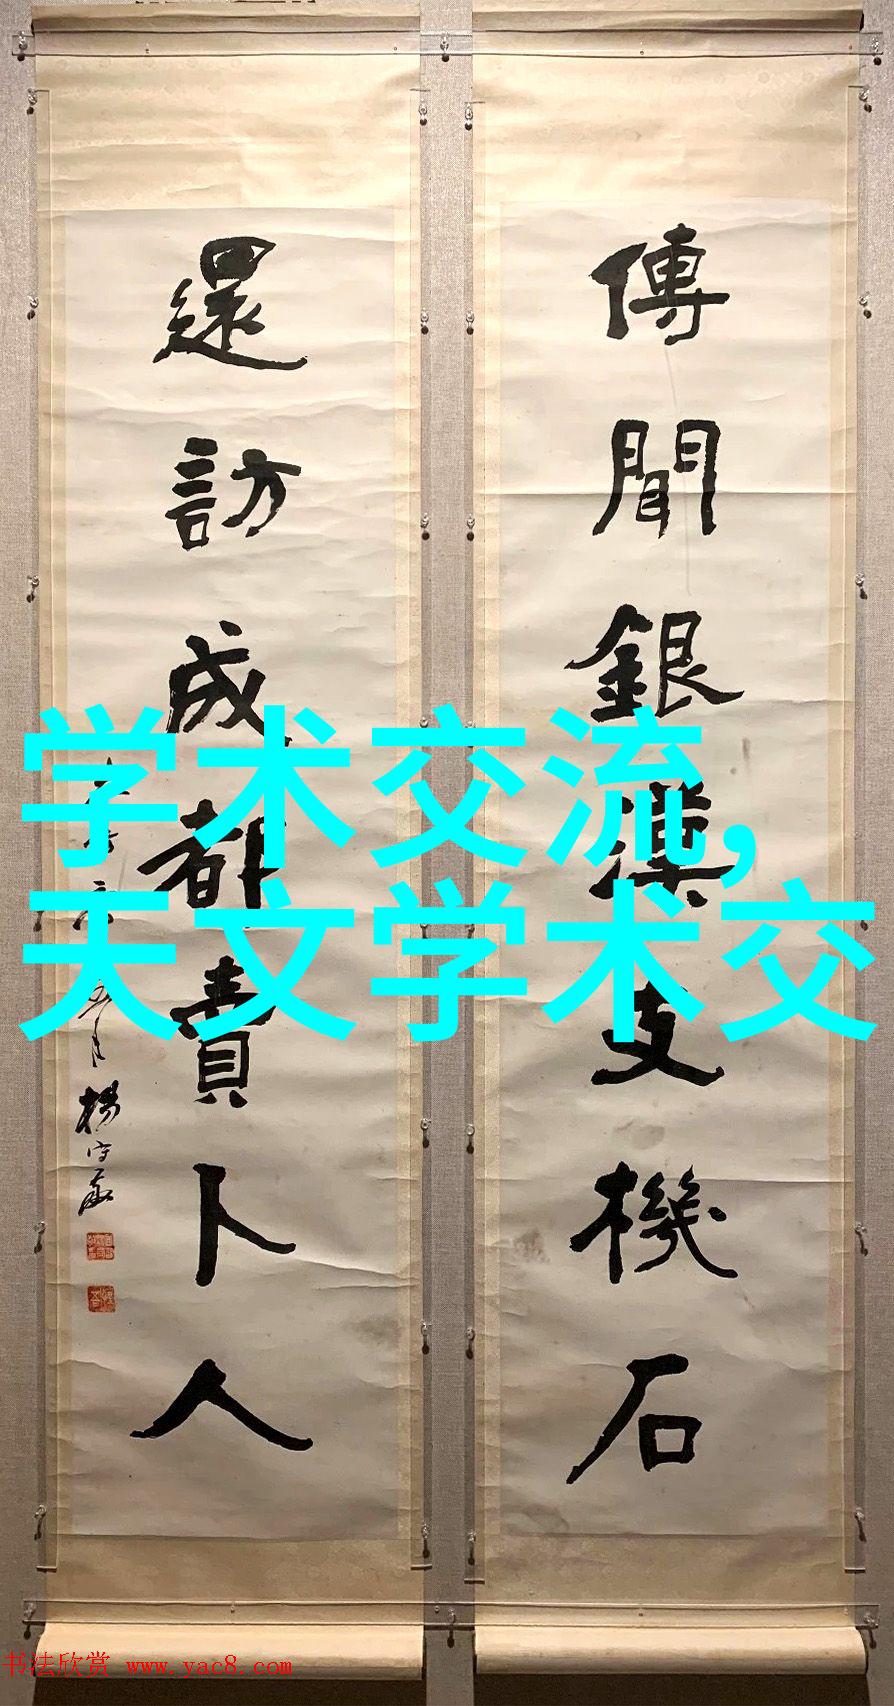 傳聞銀漢支機石
還訪成都賣卜人
楊守敬
学术交流,
天文学术交
书法欣赏 www.yac8.com